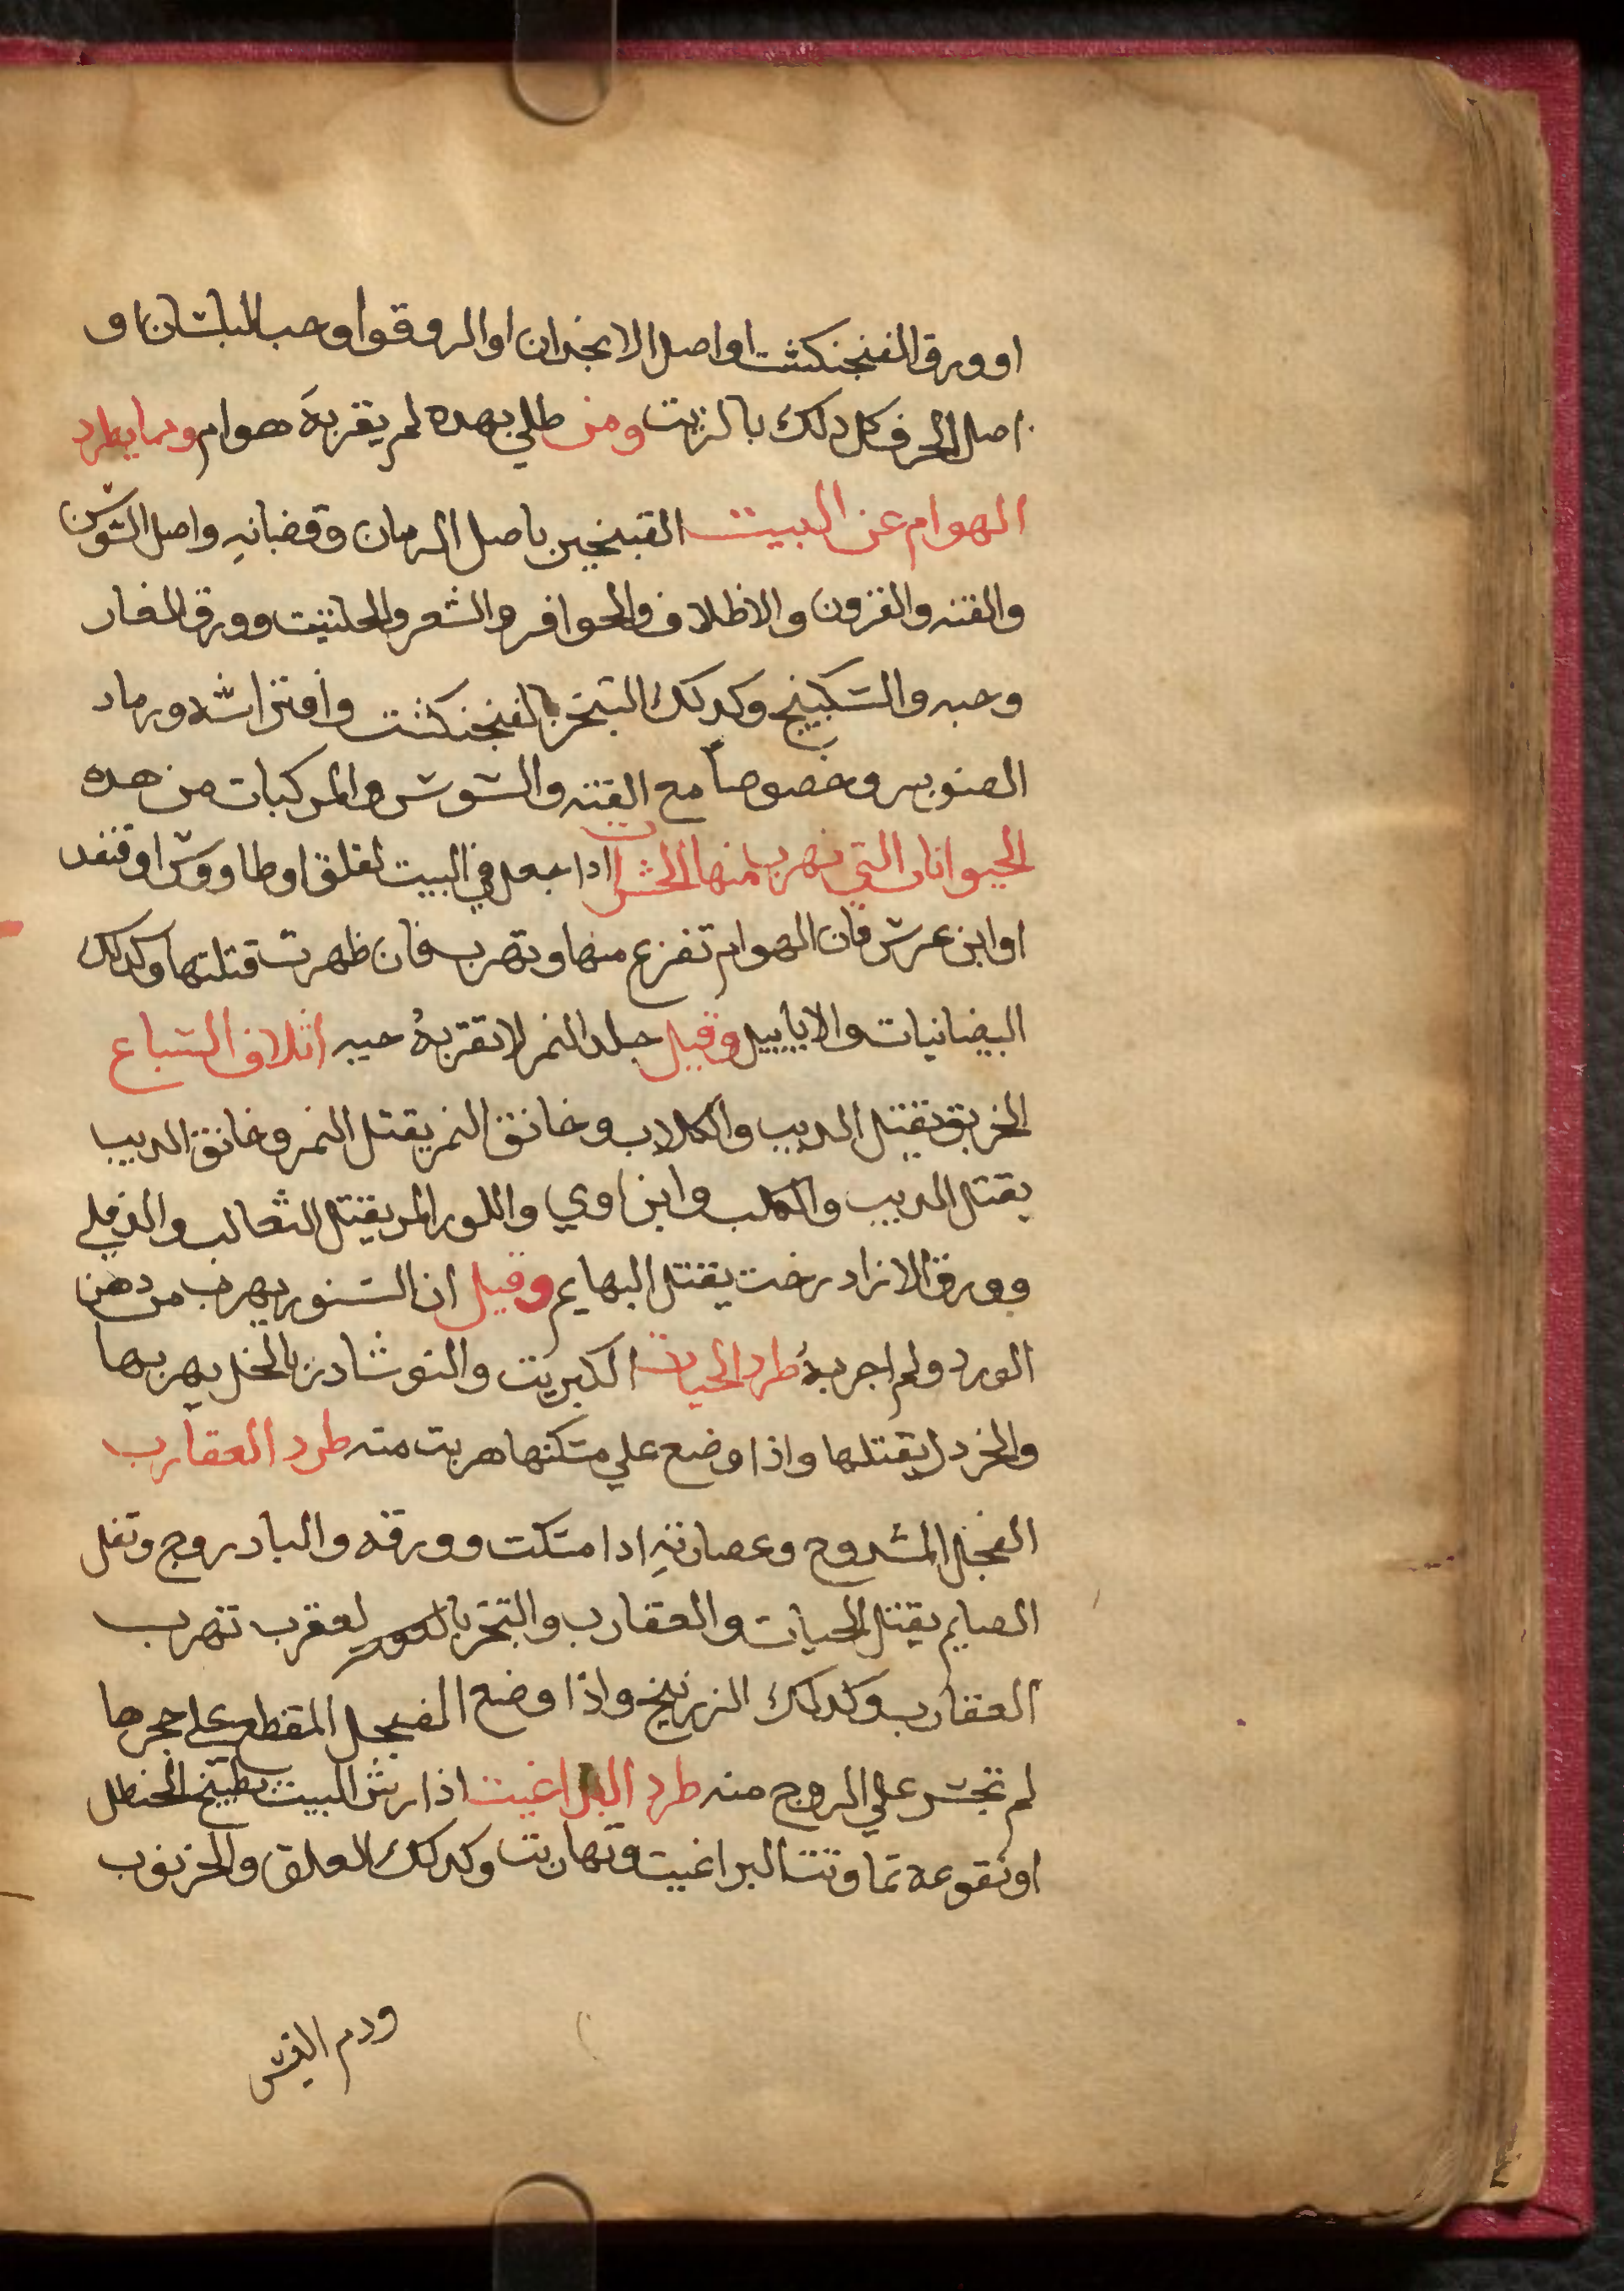 او ورق الفنجنكشت او اصل الانجدان او الروقوا وحب البلسان او
اصل الحرف كل دلك بالزيت ومن طلي بهده لم يقربهَ هوام ومما يطرد
الهوام عن البيت التبخير باصل الرمان وقضبانهِ واصل السّوسن
والقنه والقرون والاظلاف والحوافر والشعر والحلتيت وورق الغار
وحبه والسّكبينج وكدلك التبخر بالفنجنكشت وافتراشه ورماد
الصنوبر وخصوصاً مع القنه والسّوسن والمركبات من هده
الحيوانات التي تهرب منها الحشرات ادا جعل في البيت لقلق او طاووسّ او قنفد
او ابن عرسّ فان الهوام تفزع منها وتهرب فان ظهرت قتلتها وكدلك
البيضانيات والابابيل وقيل جلد النمر لا تقربهُ حيه اتلاف السّباع
الخربق يقتل الديب والكلاب وخانق النمر يقتل النمر وخانق الديب
يقتل الديب والكلب وابن اوي واللوز المر يقتل الثعالب والدفلي
وورق الازادرخت يقتل البهايم وقيل ان السّنور يهرب من دهن
الورد ولم اجربهُ طرد الحيات الكبريت والنوشادر بالخل يهربها
والخردل يقتلها واذا وضع علي مسّكنها هربت منه طرد العقارب
الفجل المشدوح وعصارتهِ ادا مسّكت وورقه والبادروج وتفل
الصايم يقتل الحيات والعقارب والتبخر بالعقرب تهرب
العقارب وكدلك الزرنيخ واذا وضع الفجل المقطع علي جحرها
لم تجسّر علي الخروج منه طرد البراغيت اذا رش البيت بطبيخ الحنظل
او نقوعه تماوتت البراغيت وتهاربت وكدلك العلق والخرنوب
ودم التيسّ